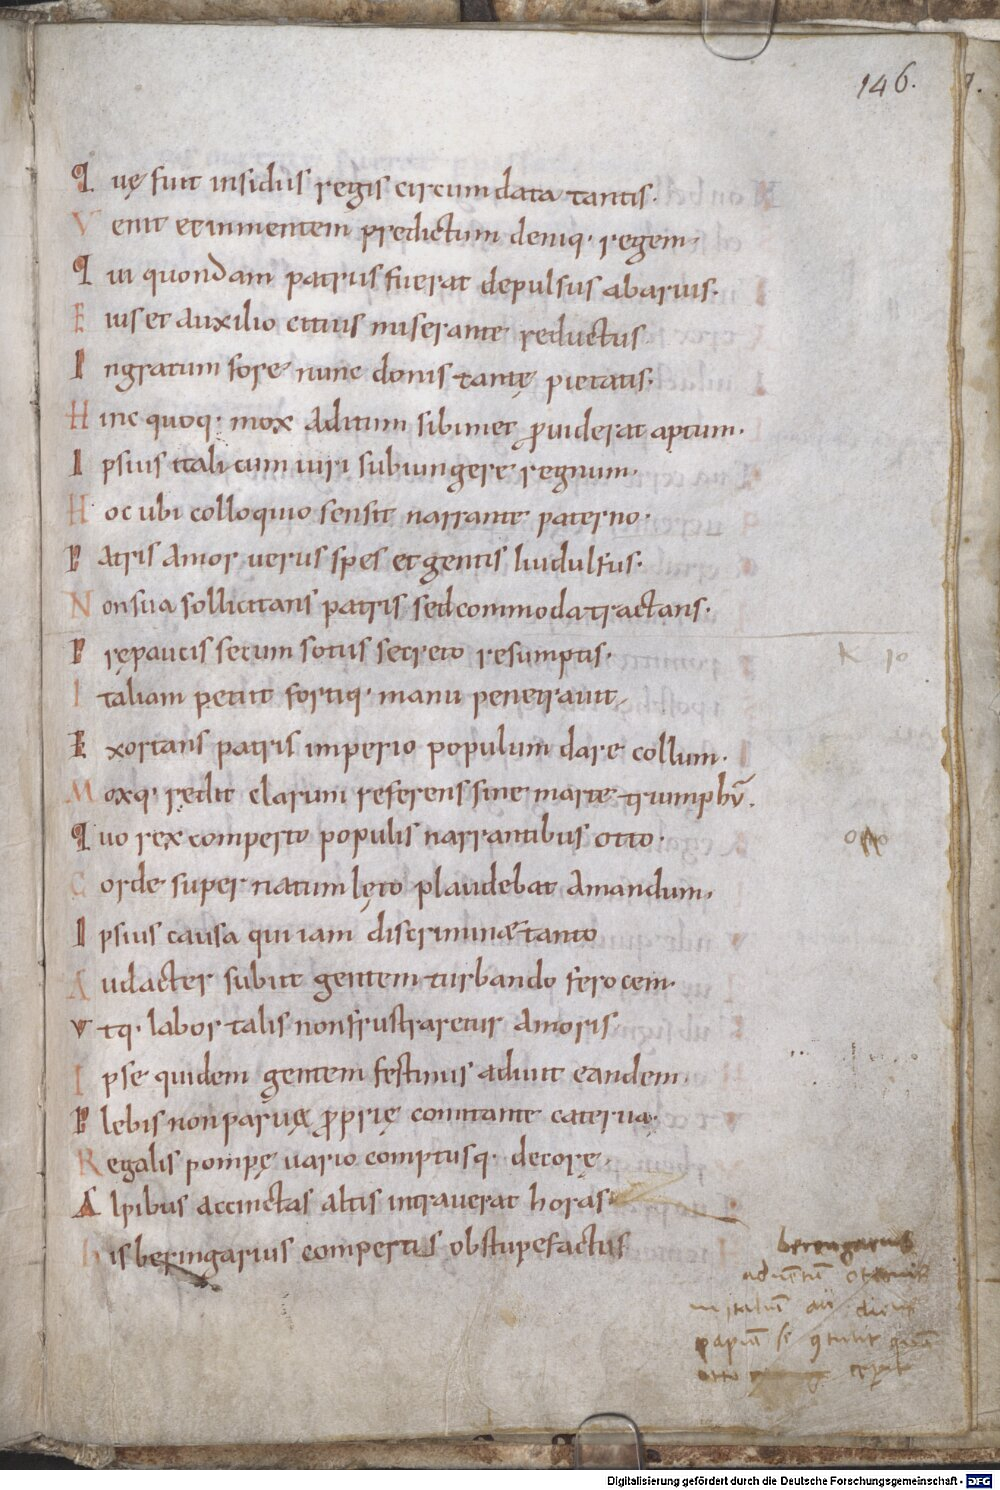 146.
Quę fuit insidiis regis circumdata tantis.
Venit et inmentem predictum deniq. regem.
Qui quondam patriis fuerat depulsus ab arvis.
Eius et auxilio citius miserante reductus
Ingratum fore nunc donis tantę pietatis.
Hinc quoq. mox aditum sibimet ꝓuiderat aptum.
Ipsius itali cum uiri subiungere regnum.
Hoc ubi colloquio sensit narrante paterno.
Patris amor uerus spes et gentis liudulfus.
Non sua sollicitans patris sed commoda tractans.
Prępaucis secum sotiis secreto resumptis.
Italiam petiit fortiq. manu penetrauit,
Exortans patris imperio populum dare collum.
Moxq. redit clarum referens sine marte triumphū.
Quo rex comperto populis narrantibus otto.
Corde super natum lęto plaudebat amandum,
Ipsius causa qui iam discrimine tanto
Audacter subiit gentem turbando ferocem.
Vtq. labor talis non frustraretur amoris
Ipse quidem gentem festinus adiuit eandem.
Plebis non paruę ꝓprię comitante caterua.
Regalis pompę uario comptusq. decorę.
Alpibus accinctas altis intrauerat horas
His beringarius compertis obstupefactus
otto
berengarius
aduētū ottonis
in italiā
papiā se
otto
Digitalisierung gefördert durch die Deutsche Forschungsgemeinschaft - DFG